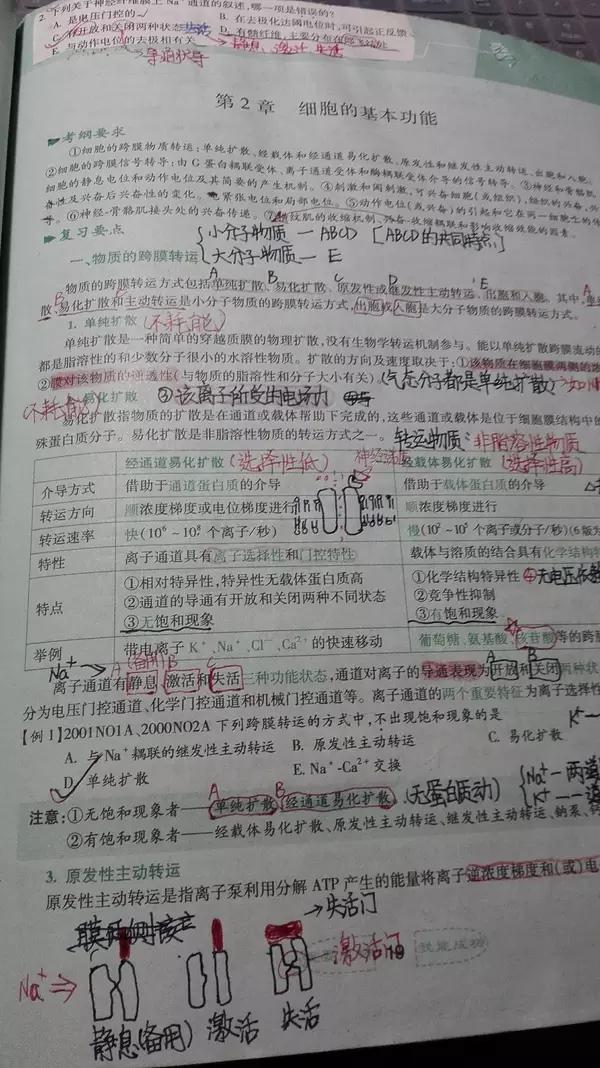 2. 下列关于神经纤维膜上Na⁺通道的叙述,哪一项是错误的?
A. 是电压门控的
B. 在去极化达阈电位时,可引起正反馈
C. 有开放和关闭两种状态 失活
D. 有髓纤维,主要分布在郎飞结处
E. 与动作电位的去极相有关 静息、激活、失活
第2章 细胞的基本功能
考纲要求
①细胞的跨膜物质转运:单纯扩散、经载体和经通道易化扩散、原发性和继发性主动转运、出胞和入胞。
②细胞的跨膜信号转导:由G蛋白耦联受体、离子通道受体和酶耦联受体介导的信号转导。③神经和骨骼肌
细胞的静息电位和动作电位及其简要的产生机制。④刺激和阈刺激,可兴奋细胞(或组织),组织的兴奋,兴
奋性及兴奋后兴奋性的变化。电紧张电位和局部电位。⑤动作电位(或兴奋)的引起和它在同一细胞上的传
导。⑥神经-骨骼肌接头处的兴奋传递。⑦横纹肌的收缩机制、兴奋-收缩耦联和影响收缩效能的因素。
复习要点
小分子物质—ABCD [ABCD的共同特点]
大分子物质—E
一、物质的跨膜转运
A B C D E
物质的跨膜转运方式包括单纯扩散、易化扩散、原发性或继发性主动转运、出胞和入胞。其中,单纯扩
散、易化扩散和主动转运是小分子物质的跨膜转运方式,出胞或入胞是大分子物质的跨膜转运方式。
1. 单纯扩散 (不耗能)
单纯扩散是一种简单的穿越质膜的物理扩散,没有生物学转运机制参与。能以单纯扩散跨膜流动的
都是脂溶性的和少数分子很小的水溶性物质。扩散的方向及速度取决于:①该物质在细胞膜两侧的浓
②膜对该物质的通透性(与物质的脂溶性和分子大小有关)。(气态分子都是单纯扩散)
不耗能 易化扩散 ③该离子所受的电场力
易化扩散指物质的扩散是在通道或载体帮助下完成的,这些通道或载体是位于细胞膜结构中的
殊蛋白质分子。易化扩散是非脂溶性物质的转运方式之一。转运物质:非脂溶性物质
经通道易化扩散 (选择性低) 经载体易化扩散 (选择性高)
介导方式 借助于通道蛋白质的介导 借助于载体蛋白质的介导
转运方向 顺浓度梯度或电位梯度进行 顺浓度梯度进行
转运速率 快(10⁶~10⁸个离子/秒) 慢(10²~10⁵个离子或分子/秒)(6版为
特性 离子通道具有离子选择性和门控特性 载体与溶质的结合具有化学结构特
特点 ①相对特异性,特异性无载体蛋白质高 ①化学结构特异性 ④无电压依赖
②通道的导通有开放和关闭两种不同状态 ②竞争性抑制
③无饱和现象 ③有饱和现象
举例 带电离子K⁺、Na⁺、Cl⁻、Ca²⁺的快速移动 葡萄糖、氨基酸、核苷酸等的跨膜
Na⁺ A(备用) B C A B
离子通道有静息、激活和失活三种功能状态,通道对离子的导通表现为开放和关闭两种状
分为电压门控通道、化学门控通道和机械门控通道等。离子通道的两个重要特征为离子选择性
【例1】2001NO1A、2000NO2A 下列跨膜转运的方式中,不出现饱和现象的是
A. 与Na⁺耦联的继发性主动转运 B. 原发性主动转运 C. 易化扩散
D. 单纯扩散 E. Na⁺-Ca²⁺交换
A B
注意:①无饱和现象者——单纯扩散、经通道易化扩散。(无蛋白质动)
②有饱和现象者——经载体易化扩散、原发性主动转运、继发性主动转运、钠泵、
3. 原发性主动转运
原发性主动转运是指离子泵利用分解ATP产生的能量将离子逆浓度梯度和(或)电
→失活门
激活门
19
Na⁺ ⇒
静息(备用) 激活 失活